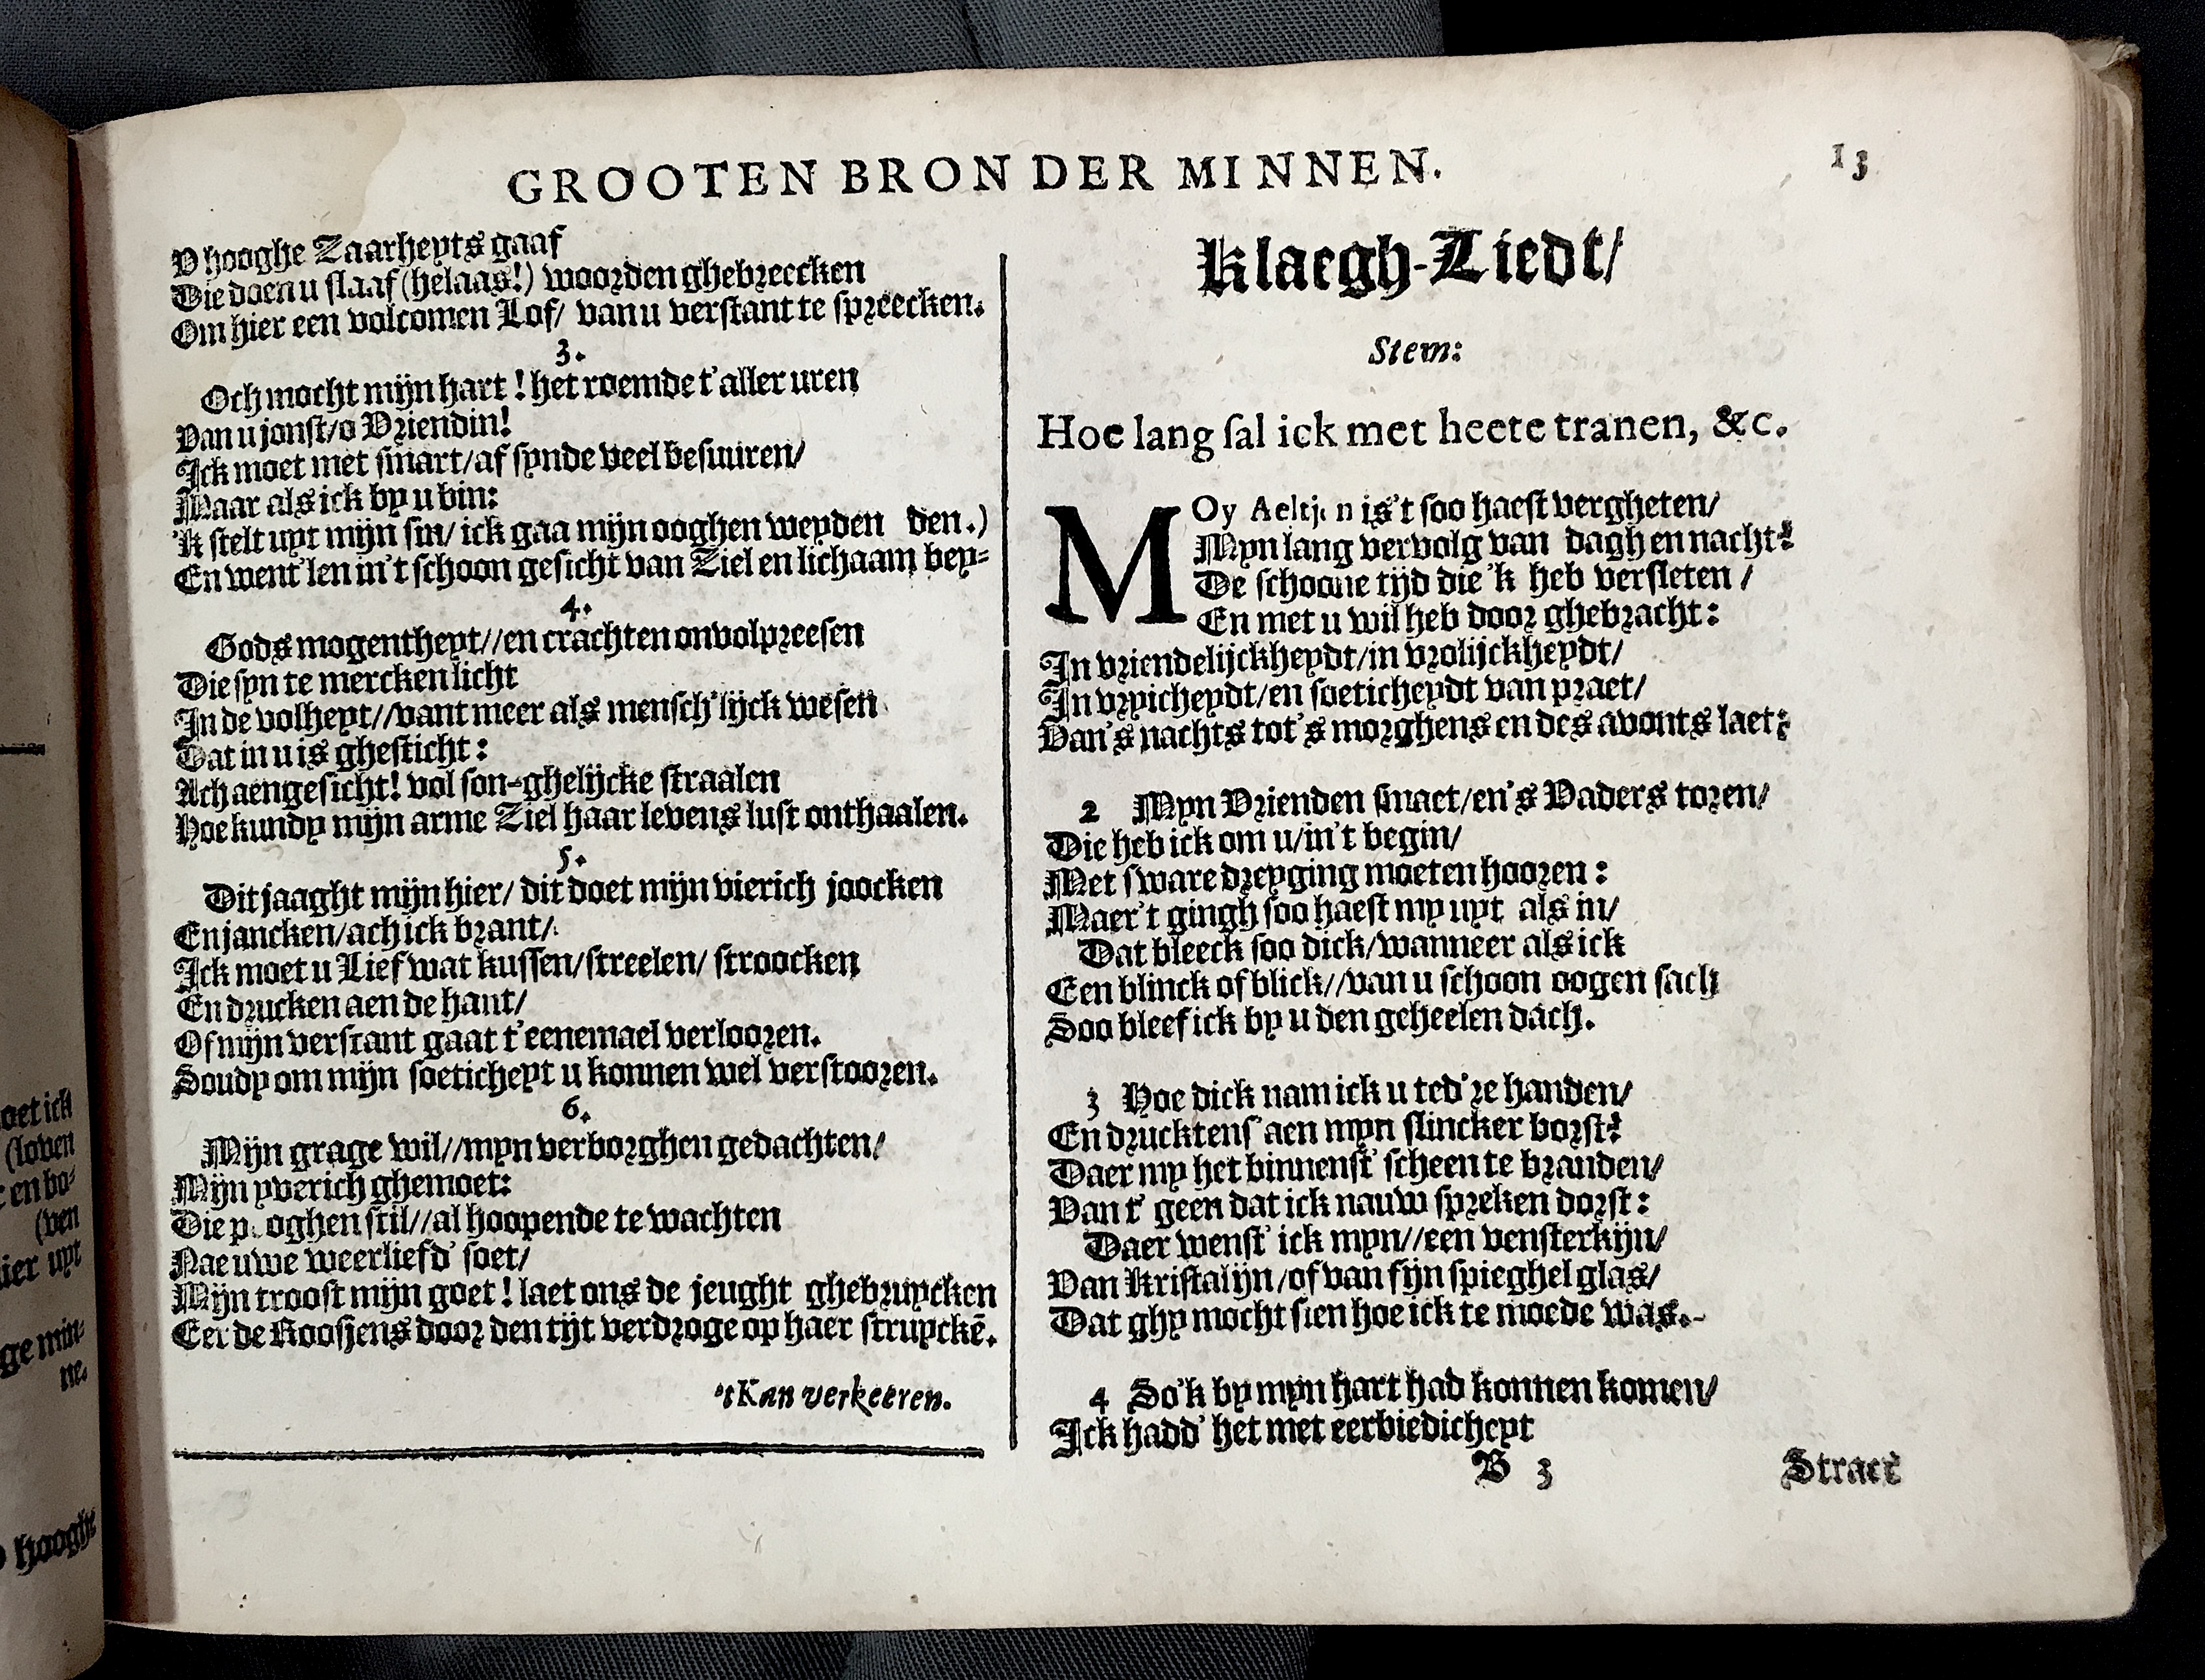 GROOTEN BRON DER MINNEN.
13
V hooghe Zaarheyts gaaf
Die doen u slaaf (helaas!) woorden ghebreecken
Om hier een volcomen Lof/ van u verstant te spreecken.
3.
Och mocht mijn hart! het roemde t'aller uren
Van u jonst/o Vriendin!
Ick moet met smart/af synde veel besuuren/
Maar als ick by u bin:
'K stelt uyt mijn sin/ ick gaa mijn ooghen weyden den.)
En went'len in't schoon gesicht van Ziel en lichaam bey-
4.
Gods mogentheyt//en crachten onvolpreesen
Die syn te mercken licht
In de volheyt//vant meer als mensch'lijck wesen
Dat in u is ghesticht:
Ach aengesicht! vol son-ghelijcke straalen
Hoe kundy mijn arme Ziel haar levens lust onthaalen.
5.
Dit jaaght mijn hier/ dit doet mijn vierich joocken
En jancken/ach ick brant/
Ick moet u Lief wat kussen/streelen/ stroocken
En drucken aen de hant/
Of mijn verstant gaat t'eenemael verlooren.
Soudy om mijn soeticheyt u konnen wel verstooren.
6.
Mijn grage wil//myn verborghen gedachten/
Mijn yverich ghemoet:
Die p oghen stil//al hoopende te wachten
Nae uwe weerliefd' soet/
Mijn troost mijn goet! laet ons de jeught ghebruycken
Eer de Roosjens door den tijt verdroge op haer struyckē.
'tKan verkeeren.
Klaegh-Liedt/
Stem:
Hoe lang sal ick met heete tranen, &c.
MOy Aeltjen is't soo haest vergheten/
Myn lang vervolg van dagh en nacht:
De schoone tijd die 'k heb versleten /
En met u wil heb door ghebracht:
In vriendelijckheydt/in vrolijckheydt/
In vryicheydt/en soeticheydt van praet/
Van's nachts tot's morghens en des avonts laet:
2 Myn Vrienden smaet/en's Vaders toren/
Die heb ick om u/in't begin/
Met sware dreyging moeten hooren:
Maer't gingh soo haest my uyt als in/
Dat bleeck soo dick/wanneer als ick
Een blinck of blick//van u schoon oogen sach
Soo bleef ick by u den geheelen dach.
3 Hoe dick nam ick u ted're handen/
En drucktens' aen myn slincker borst:
Daer my het binnenst' scheen te branden/
Van t' geen dat ick nauw spreken dorst:
Daer wenst' ick myn//een vensterkijn/
Van Kristalijn/of van fijn spieghel glas/
Dat ghy mocht sien hoe ick te moede was.
4 So'k by myn hart had konnen komen/
Ick hadd' het met eerbiedicheyt
B 3
Stracx
oet ick
(loven
en bo-
(ven
ier uyt
ge min-
ne.
hooghe